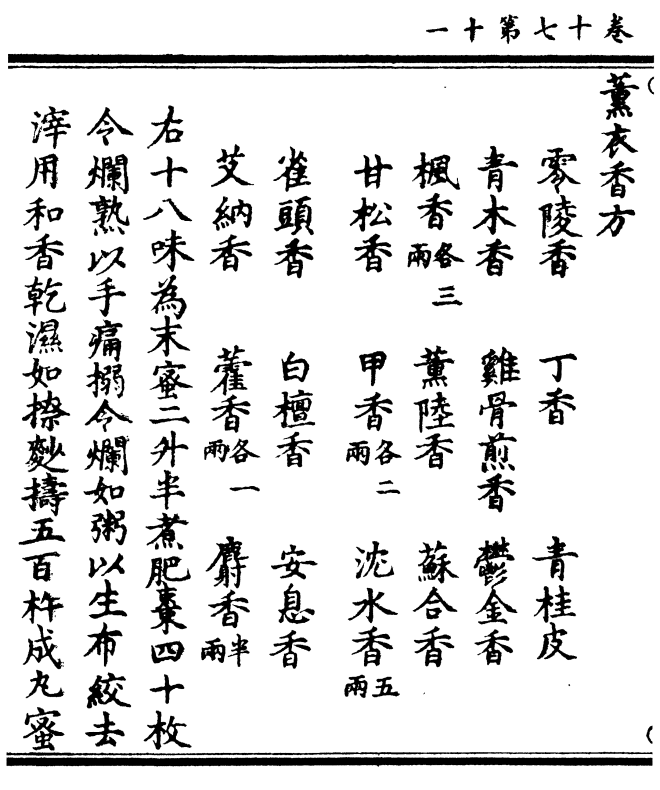 卷十七第十一
薰衣香方
零陵香 丁香 青桂皮
青木香 雞骨煎香 鬱金香
楓香各三兩 薰陸香 蘇合香
甘松香 甲香各二兩 沈水香五兩
雀頭香 白檀香 安息香
艾納香 藿香各一兩 麝香半兩
右十八味為末蜜二外半煮肥棗四十枚
令爛熟以手痛搦令爛如粥以生布絞去
滓用和香乾濕如捺麨擣五百杵成丸蜜